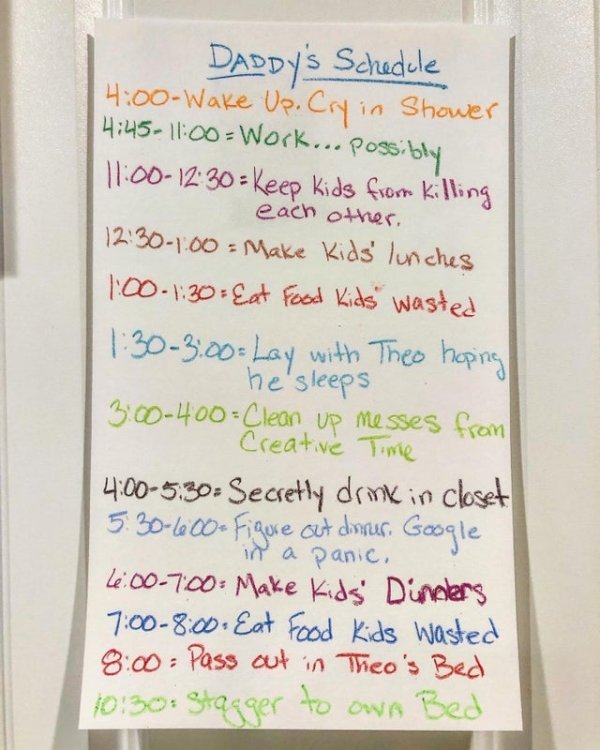 DADDY's Schedule
4:00-Wake Up. Cry in Shower
4:45-11:00=Work... possibly
11:00-12:30=Keep kids from Killing
each other.
12:30-1:00=Make Kids' lunches
1:00-1:30=Eat Food Kids wasted
1:30-3:00=Lay with Theo hoping
he sleeps
3:00-4:00=Clean up messes from
Creative Time
4:00-5:30=Secretly drink in closet
5:30-6:00=Figure out dinner. Google
in a panic.
6:00-7:00=Make Kids' Dinners
7:00-8:00=Eat Food Kids Wasted
8:00=Pass out in Theo's Bed
10:30=Stagger to own Bed